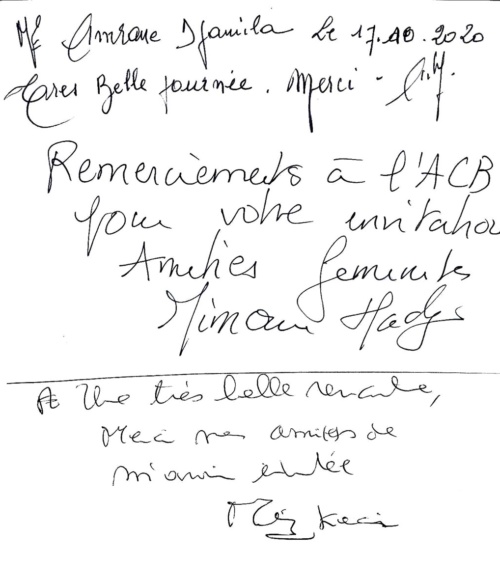 Mme Amrane Djamila le 17.10.2020
Très Belle journée. Merci - A.Dj.
Remerciements à l'ACB
pour votre invitation
Amitiés féministes
Hadj
Une très belle rencontre,
Merci mes ami(e)s de
m'avoir